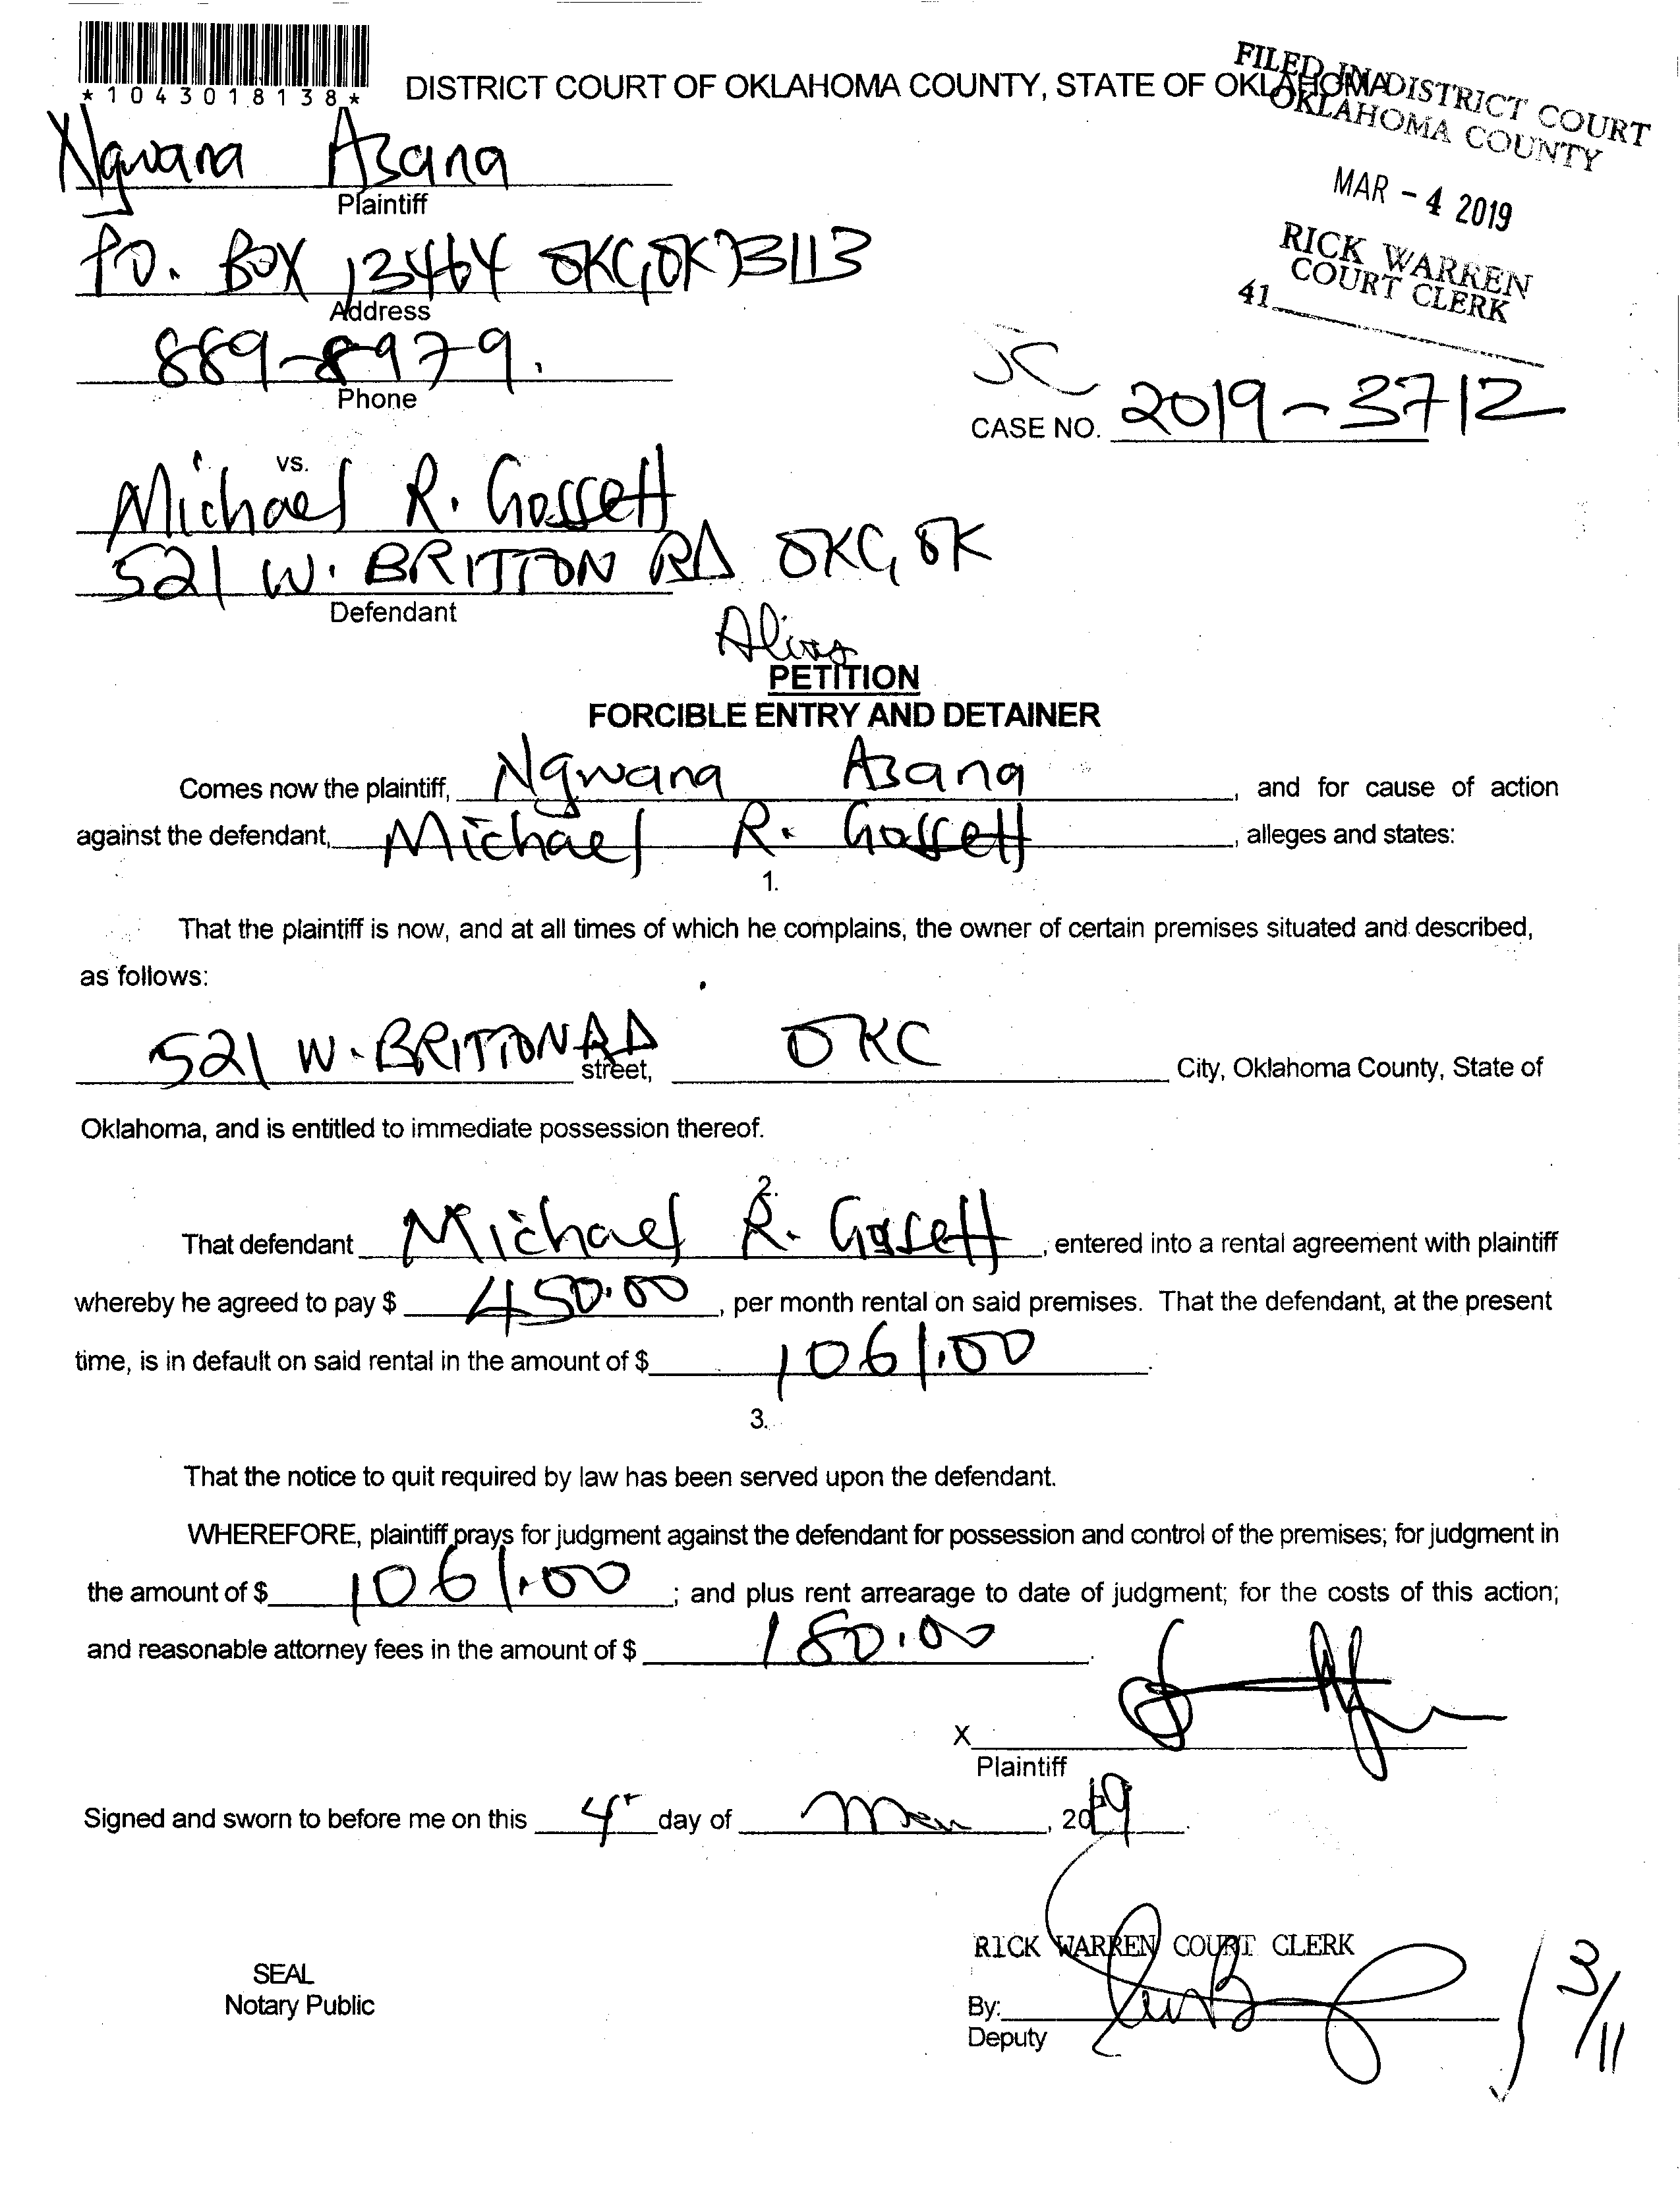 *1043018138*
DISTRICT COURT OF OKLAHOMA COUNTY, STATE OF OKLAHOMA
FILED IN DISTRICT COURT
OKLAHOMA COUNTY
MAR - 4 2019
RICK WARREN
COURT CLERK
41
Ngwana Asana
Plaintiff
P.O. BOX 13464 OKC, OK 73113
Address
889-8979.
Phone
CASE NO. 2019-3712
vs.
Michael R. Gossett
521 W. BRITTON RD OKC, OK
Defendant
Alias
PETITION
FORCIBLE ENTRY AND DETAINER
Comes now the plaintiff, Ngwana Asana, and for cause of action
against the defendant, Michael R. Gossett, alleges and states:
1.
That the plaintiff is now, and at all times of which he complains, the owner of certain premises situated and described,
as follows:
521 W. BRITTON RD street, OKC City, Oklahoma County, State of
Oklahoma, and is entitled to immediate possession thereof.
2.
That defendant Michael R. Gossett, entered into a rental agreement with plaintiff
whereby he agreed to pay $ 450.00, per month rental on said premises. That the defendant, at the present
time, is in default on said rental in the amount of $ 1061.00.
3.
That the notice to quit required by law has been served upon the defendant.
WHEREFORE, plaintiff prays for judgment against the defendant for possession and control of the premises; for judgment in
the amount of $ 1061.00; and plus rent arrearage to date of judgment; for the costs of this action;
and reasonable attorney fees in the amount of $ 180.00.
X
Plaintiff
Signed and sworn to before me on this 4 day of Mar, 2019.
RICK WARREN COURT CLERK
SEAL
Notary Public
By:
Deputy
3/11